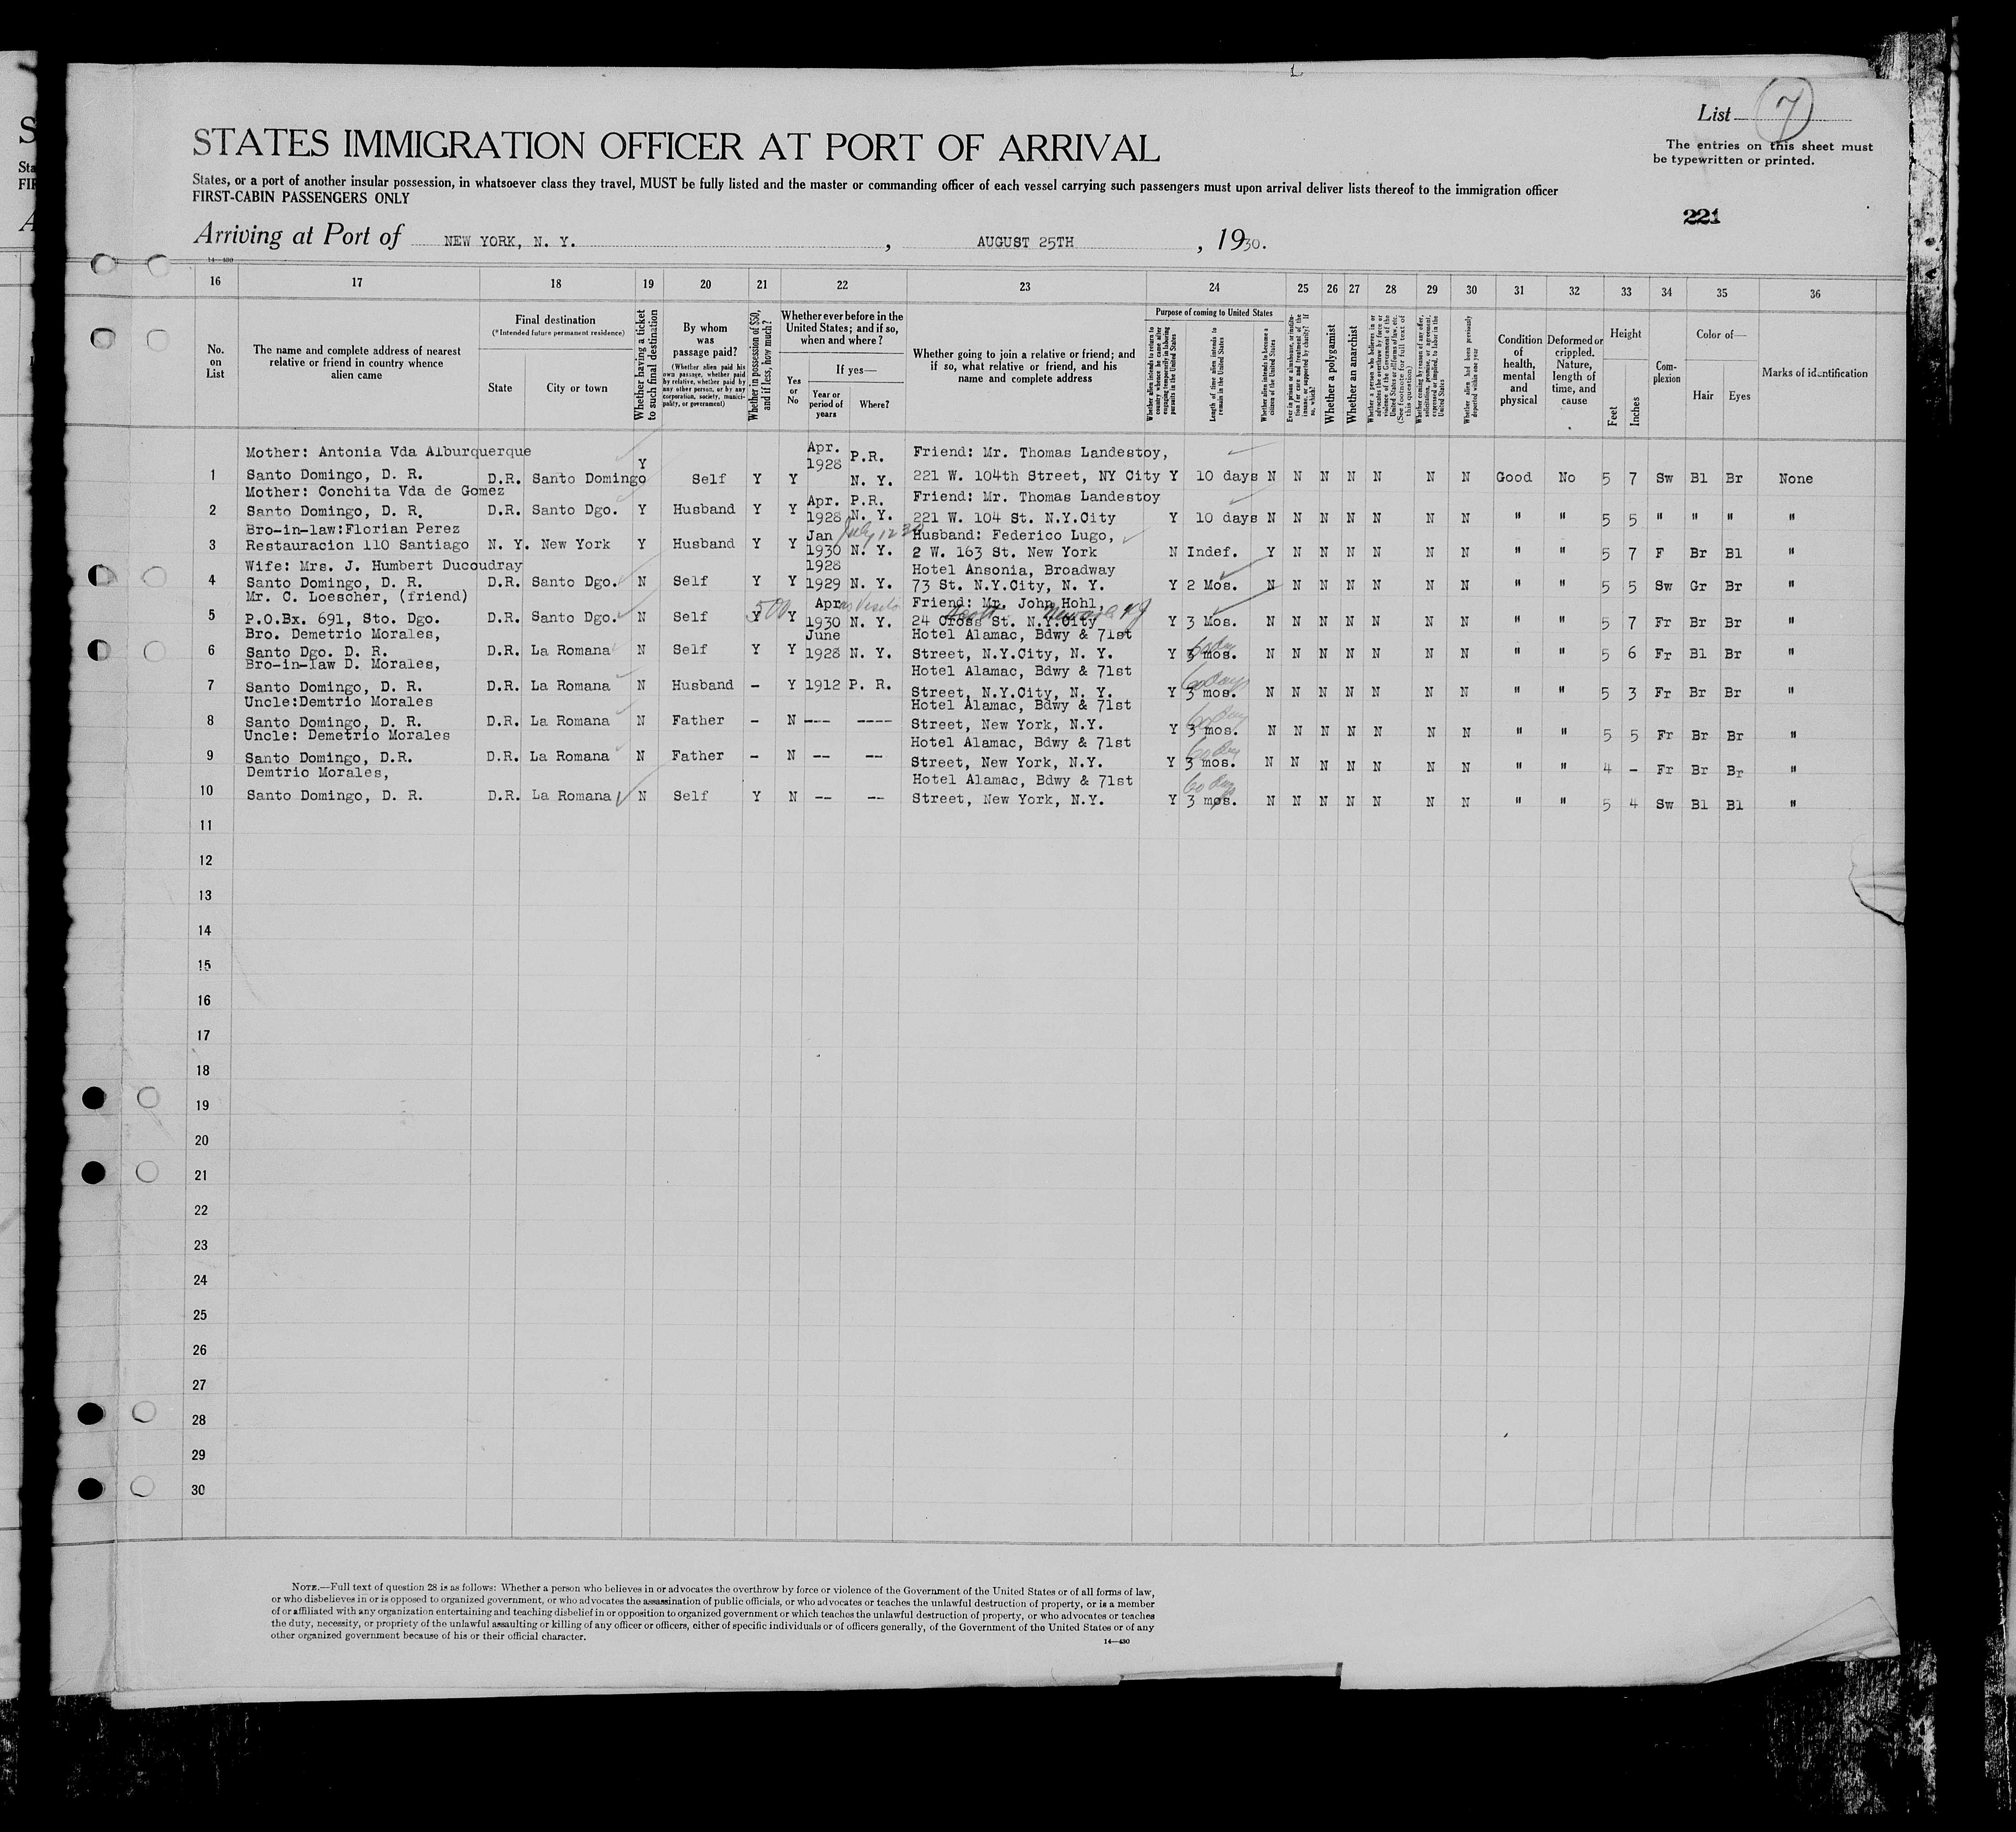 List 7
STATES IMMIGRATION OFFICER AT PORT OF ARRIVAL
The entries on this sheet must
be typewritten or printed.
States, or a port of another insular possession, in whatsoever class they travel, MUST be fully listed and the master or commanding officer of each vessel carrying such passengers must upon arrival deliver lists thereof to the immigration officer
FIRST-CABIN PASSENGERS ONLY
221
Arriving at Port of NEW YORK, N. Y. , AUGUST 25TH , 1930.
14—430
16 17 18 19 20 21 22 23 24 25 26 27 28 29 30 31 32 33 34 35 36
No. on List
The name and complete address of nearest relative or friend in country whence alien came
Final destination
(*Intended future permanent residence)
State
City or town
Whether having a ticket to such final destination
By whom was passage paid?
(Whether alien paid his own passage, whether paid by relative, whether paid by any other person, or by any corporation, society, municipality, or government)
Whether in possession of $50, and if less, how much?
Whether ever before in the United States; and if so, when and where?
Yes or No
If yes—
Year or period of years
Where?
Whether going to join a relative or friend; and if so, what relative or friend, and his name and complete address
Purpose of coming to United States
Whether alien intends to return to country whence he came after engaging temporarily in laboring pursuits in the United States
Length of time alien intends to remain in the United States
Whether alien intends to become a citizen of the United States
Ever in prison or almshouse, or institution for care and treatment of the insane, or supported by charity? If so, which?
Whether a polygamist
Whether an anarchist
Whether a person who believes in or advocates the overthrow by force or violence of the Government of the United States or all forms of law, etc. (See footnote for full text of this question)
Whether coming by reason of any offer, solicitation, promise, or agreement, expressed or implied, to labor in the United States
Whether alien had been previously deported within one year
Condition of health, mental and physical
Deformed or crippled. Nature, length of time, and cause
Height
Feet
Inches
Complexion
Color of—
Hair
Eyes
Marks of identification
Mother: Antonia Vda Alburquerque Apr. 1928 P.R. Friend: Mr. Thomas Landestoy,
1 Santo Domingo, D. R. D.R. Santo Domingo Y Self Y Y N. Y. 221 W. 104th Street, NY City Y 10 days N N N N N N N Good No 5 7 Sw Bl Br None
Mother: Conchita Vda de Gomez Apr. P.R. Friend: Mr. Thomas Landestoy
2 Santo Domingo, D. R. D.R. Santo Dgo. Y Husband Y Y 1928 N. Y. 221 W. 104 St. N.Y.City Y 10 days N N N N N N N " " 5 5 " " " "
Bro-in-law:Florian Perez Jan July Husband: Federico Lugo,
3 Restauracion 110 Santiago N. Y. New York Y Husband Y Y 1930 N. Y. 2 W. 163 St. New York N Indef. Y N N N N N N " " 5 7 F Br Bl "
Wife: Mrs. J. Humbert Ducoudray 1928 Hotel Ansonia, Broadway
4 Santo Domingo, D. R. D.R. Santo Dgo. N Self Y Y 1929 N. Y. 73 St. N.Y.City, N. Y. Y 2 Mos. N N N N N N N " " 5 5 Sw Gr Br "
Mr. C. Loescher, (friend) 500 Apr Friend: Mr. John Hohl,
5 P.O.Bx. 691, Sto. Dgo. D.R. Santo Dgo. N Self Y Y 1930 N. Y. 24 Cross St. N.Y.City Newark NJ Y 3 Mos. N N N N N N N " " 5 7 Fr Br Br "
Bro. Demetrio Morales, June Hotel Alamac, Bdwy & 71st
6 Santo Dgo. D. R. D.R. La Romana N Self Y Y 1928 N. Y. Street, N.Y.City, N. Y. Y 3 mos. N N N N N N N " " 5 6 Fr Bl Br "
Bro-in-law D. Morales, Hotel Alamac, Bdwy & 71st 60 days
7 Santo Domingo, D. R. D.R. La Romana N Husband - Y 1912 P. R. Street, N.Y.City, N. Y. Y 3 mos. N N N N N N N " " 5 3 Fr Br Br "
Uncle:Demtrio Morales Hotel Alamac, Bdwy & 71st 60 Day
8 Santo Domingo, D. R. D.R. La Romana N Father - N --- ---- Street, New York, N.Y. Y 3 mos. N N N N N N N " " 5 5 Fr Br Br "
Uncle: Demetrio Morales Hotel Alamac, Bdwy & 71st 60 Day
9 Santo Domingo, D.R. D.R. La Romana N Father - N -- -- Street, New York, N.Y. Y 3 mos. N N N N N N N " " 4 - Fr Br Br "
Demtrio Morales, Hotel Alamac, Bdwy & 71st 60 Days
10 Santo Domingo, D. R. D.R. La Romana N Self Y N -- -- Street, New York, N.Y. Y 3 mos. N N N N N N N " " 5 4 Sw Bl Bl "
11
12
13
14
15
16
17
18
19
20
21
22
23
24
25
26
27
28
29
30
NOTE.—Full text of question 28 is as follows: Whether a person who believes in or advocates the overthrow by force or violence of the Government of the United States or of all forms of law,
or who disbelieves in or is opposed to organized government, or who advocates the assassination of public officials, or who advocates or teaches the unlawful destruction of property, or is a member
of or affiliated with any organization entertaining and teaching disbelief in or opposition to organized government or which teaches the unlawful destruction of property, or who advocates or teaches
the duty, necessity, or propriety of the unlawful assaulting or killing of any officer or officers, either of specific individuals or of officers generally, of the Government of the United States or of any
other organized government because of his or their official character.
14—430